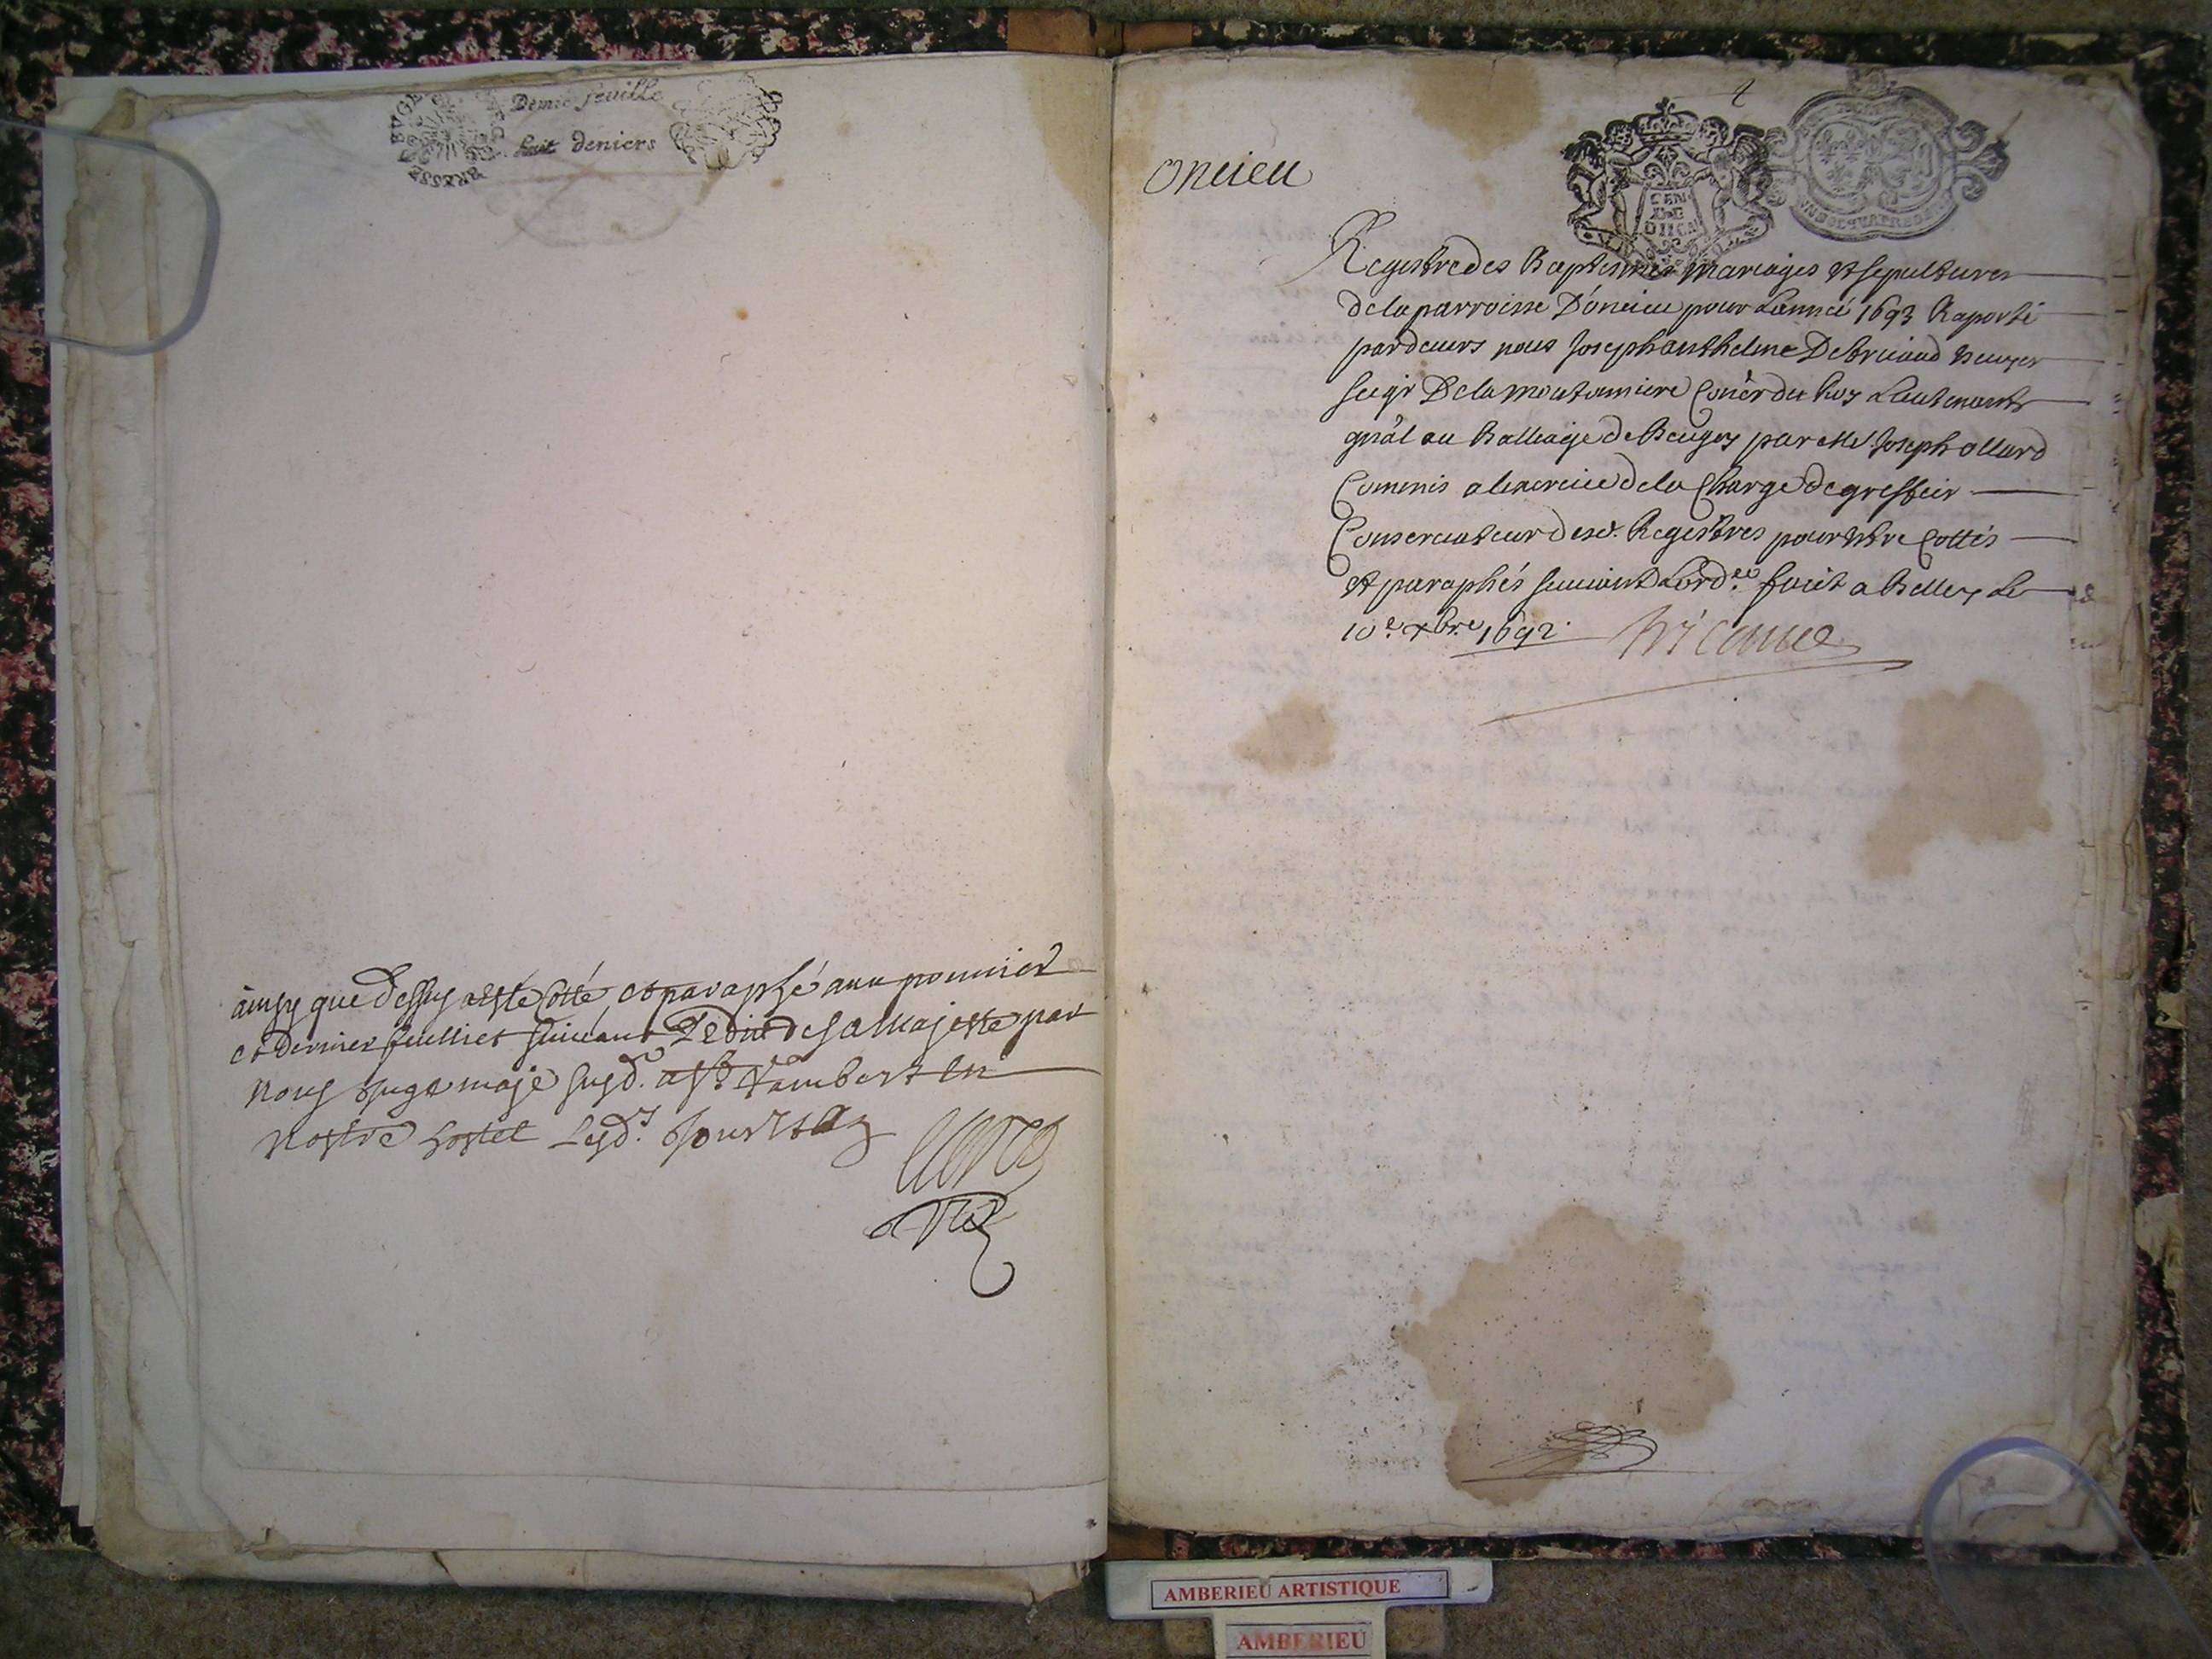 BRESSE BVGE
Demie feuille
huit deniers
ainsy que dessus a esté Cotté et paraphé au premier
et dernier feulliet suivant L'edit de sa Majesté par
Nous Juge maje susd. a St Rambert en
Nostre hostel Lesd. Jour et an
oncieu
Registre des Baptesmes mariages et sepultures
de la parroisse D'oncieu pour Lanneé 1693 Raporté
pardeuers nous Joseph anthelme Debruiand
seigr De la Coner du Roy Lieutenant
gnâl au Balliage de Beugey par Me Joseph ollard
Commis a lexercice de la Charge de greffier
Conseruateur desd. Registres pour estre Cottés
et paraphés suiuant Lordce fait a Belley Le
10e xbre 1692
AMBERIEU ARTISTIQUE
AMBERIEU